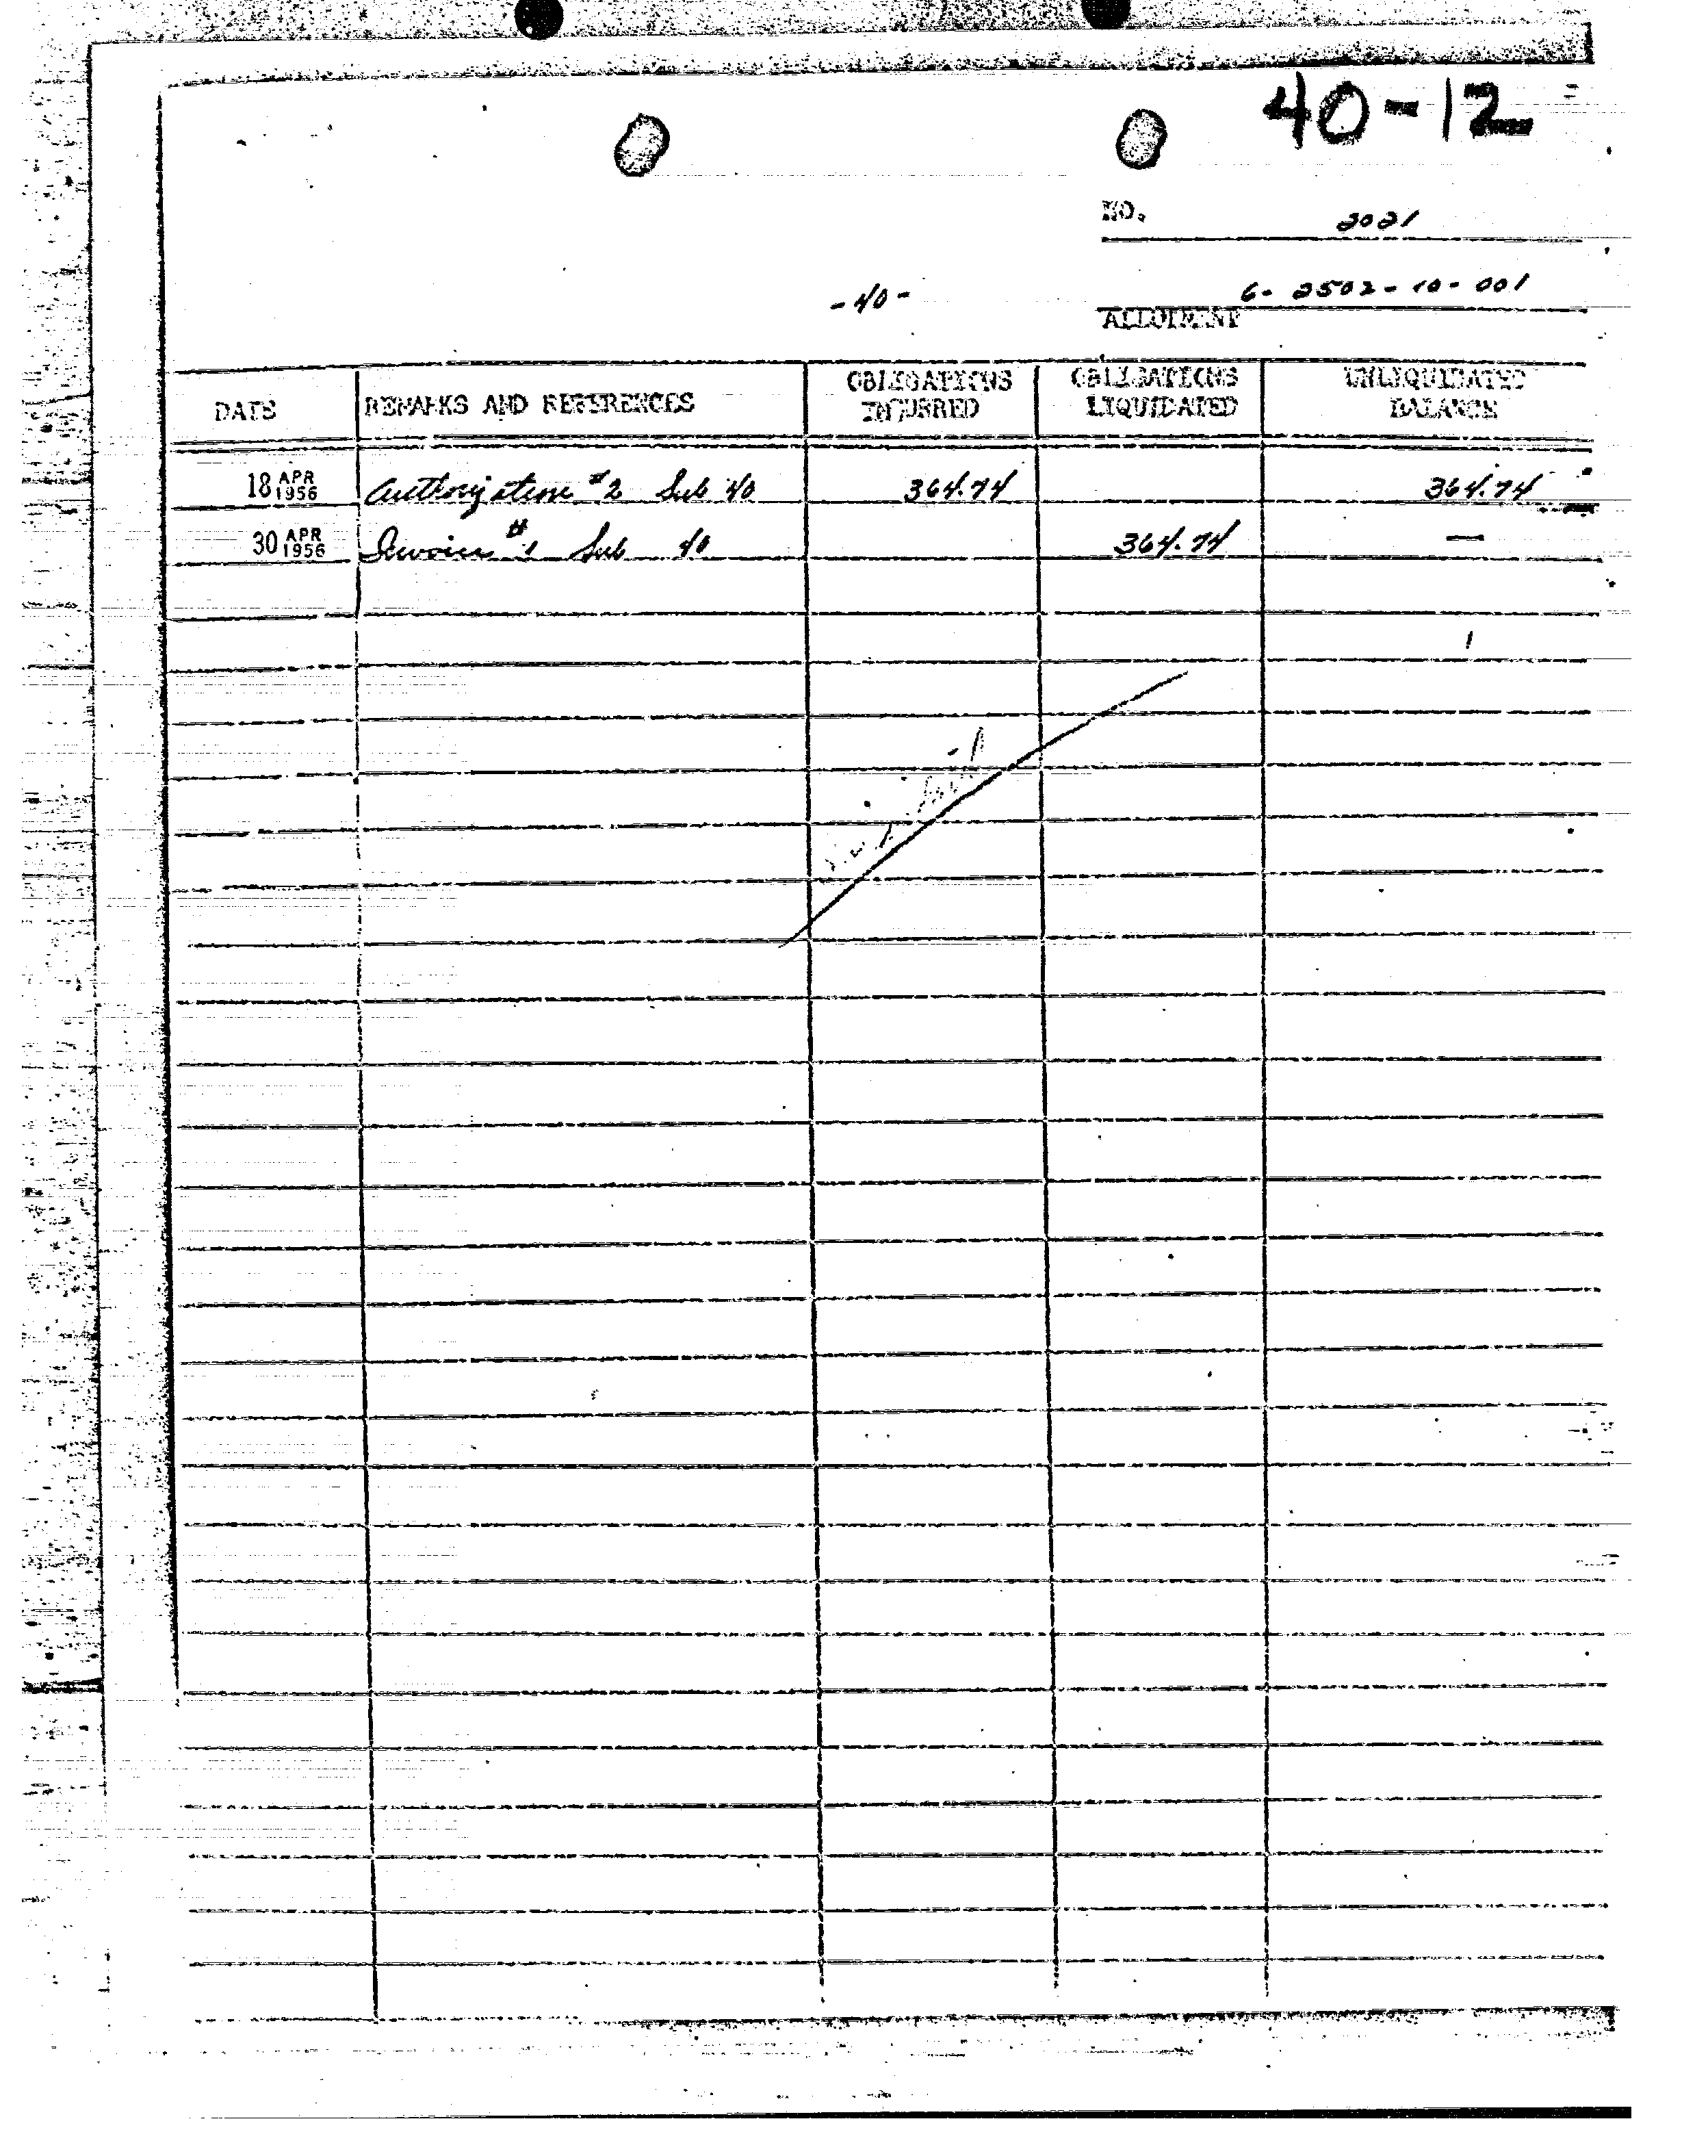 40-12
NO. 2021
-40-
6-2502-10-001
ALLOTMENT
DATE REMARKS AND REFERENCES OBLIGATIONS INCURRED OBLIGATIONS LIQUIDATED UNLIQUIDATED BALANCE
18 APR 1956 Authorization #2 Sub 40 364.74 364.74
30 APR 1956 Invoice #1 Sub 40 364.74 —